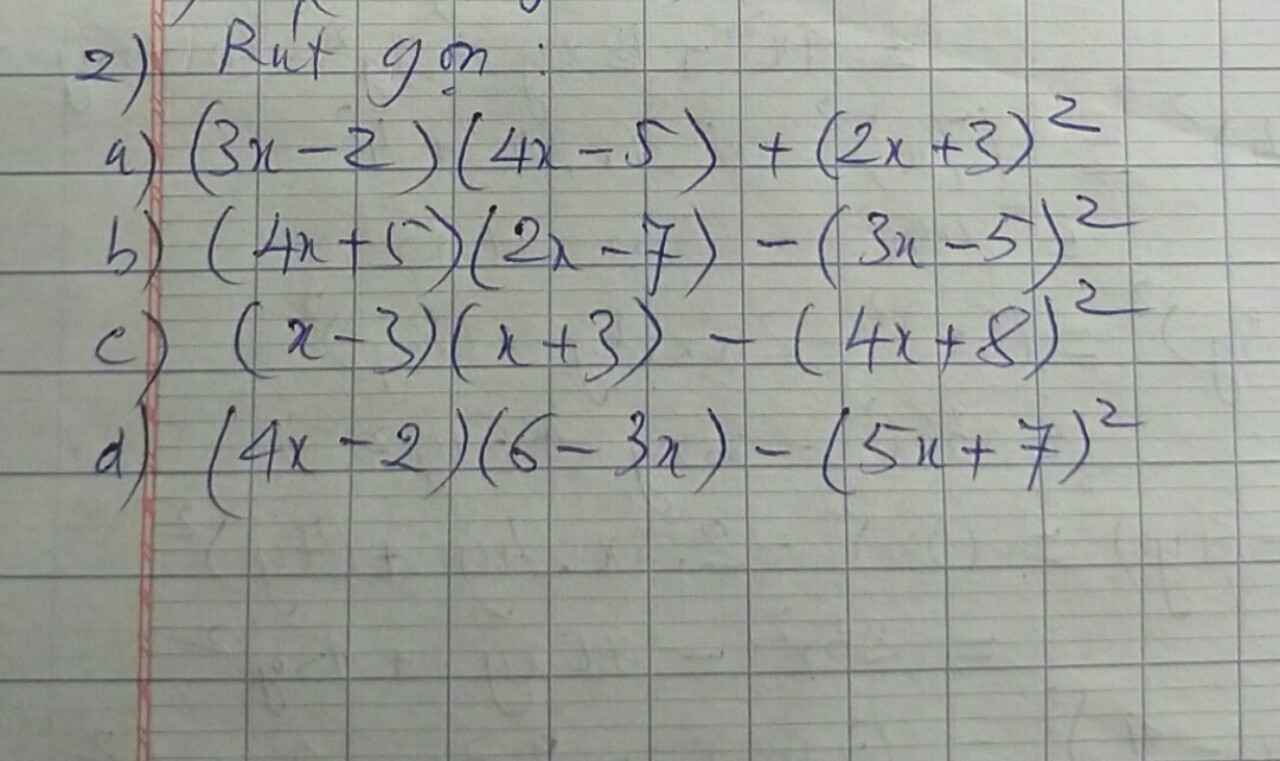 2) Rút gọn :
a) (3x - 2)(4x - 5) + (2x + 3)²
b) (4x + 5)(2x - 7) - (3x - 5)²
c) (x - 3)(x + 3) - (4x + 8)²
d) (4x - 2)(6 - 3x) - (5x + 7)²